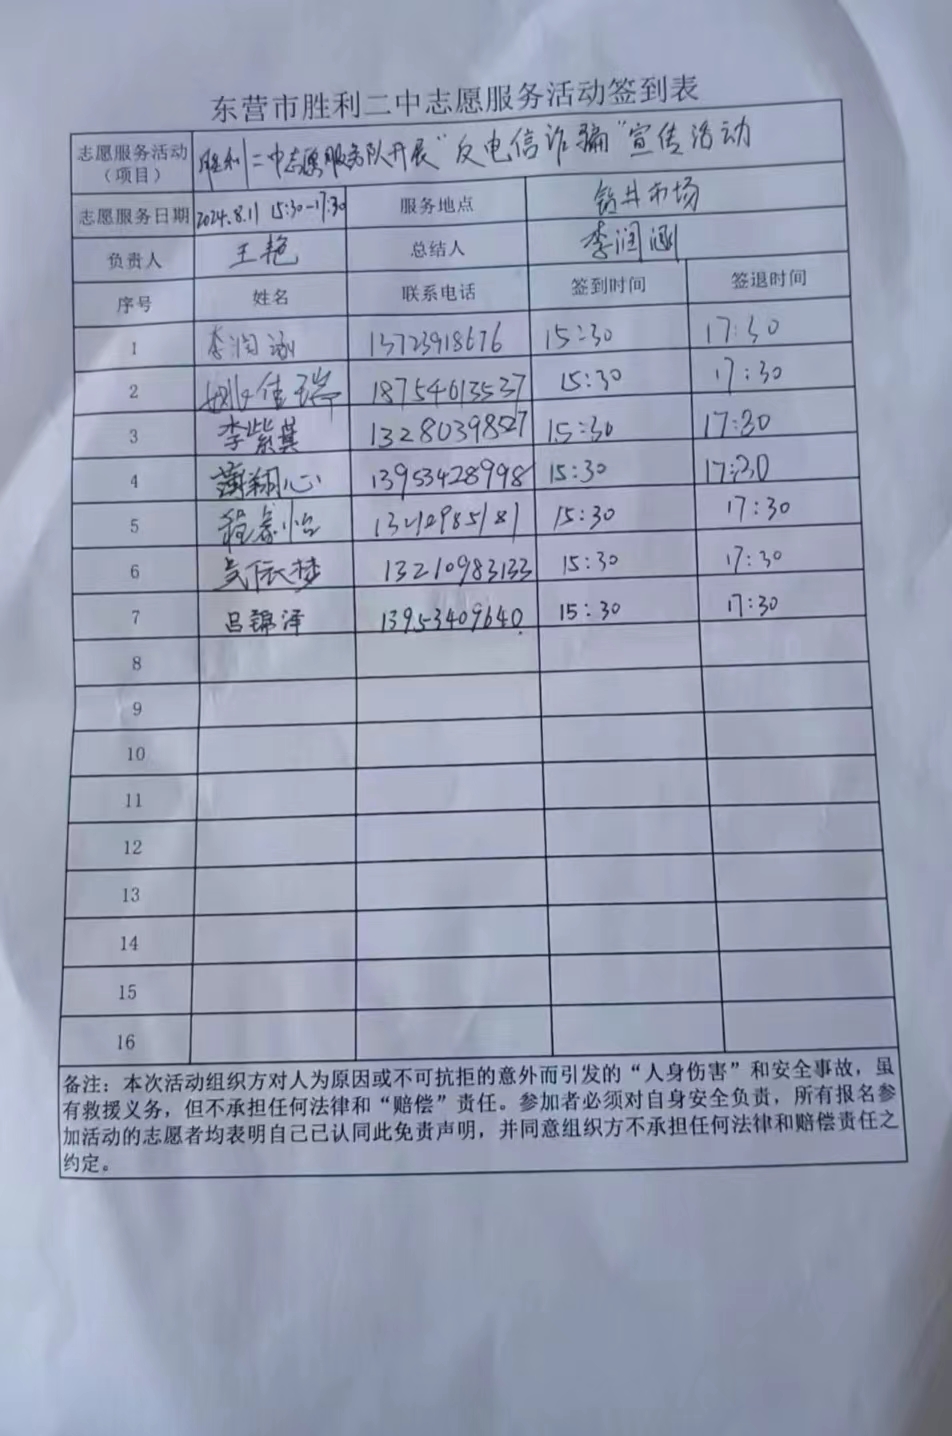 东营市胜利二中志愿服务活动签到表
志愿服务活动（项目） 胜利二中志愿服务队开展“反电信诈骗”宣传活动
志愿服务日期 2024.8.11 15:30-17:30 服务地点 钻井市场
负责人 王艳 总结人 李润涵
序号 姓名 联系电话 签到时间 签退时间
1 李润涵 13723918676 15:30 17:30
2 姚佳瑞 18754613537 15:30 17:30
3 李紫萁 13280398527 15:30 17:30
4 翔心 13953428998 15:30 17:30
5 程 怡 15:30 17:30
6 吴依梦 13210983133 15:30 17:30
7 吕锦泽 13953409640 15:30 17:30
8
9
10
11
12
13
14
15
16
备注：本次活动组织方对人为原因或不可抗拒的意外而引发的“人身伤害”和安全事故，虽
有救援义务，但不承担任何法律和“赔偿”责任。参加者必须对自身安全负责，所有报名参
加活动的志愿者均表明自己已认同此免责声明，并同意组织方不承担任何法律和赔偿责任之
约定。